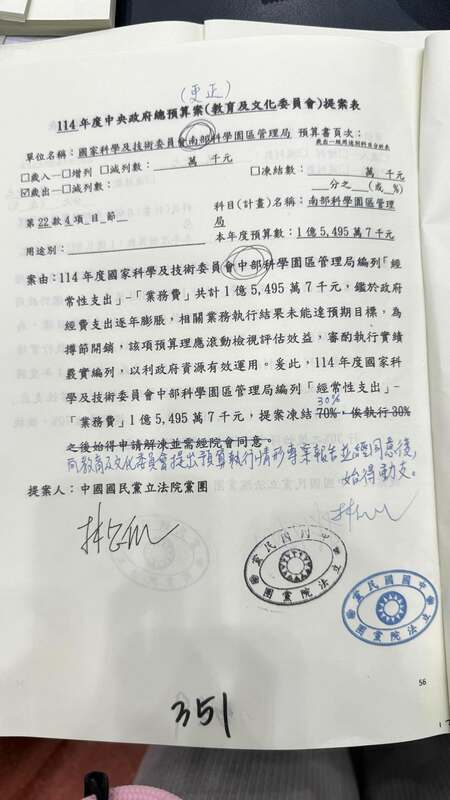 (更正)
114 年度中央政府總預算案(教育及文化委員會)提案表
單位名稱：國家科學及技術委員會南部科學園區管理局 預算書頁次：
歲出一級用途別科目分析表
□歲入—□增列 □減列數： 萬 千元 □凍結數： 萬 千元
☑歲出—□減列數： 分之 (或 %)
第 22 款 4 項 目 節 科目(計畫)名稱：南部科學園區管理局
本年度預算數：1 億 5,495 萬 7 千元
用途別：
案由：114 年度國家科學及技術委員會中部科學園區管理局編列「經
常性支出」-「業務費」共計 1 億 5,495 萬 7 千元，鑑於政府
經費支出逐年膨脹，相關業務執行結果未能達預期目標，為
撙節開銷，該項預算理應滾動檢視評估效益，審酌執行實績
覈實編列，以利政府資源有效運用。爰此，114 年度國家科
學及技術委員會中部科學園區管理局編列「經常性支出」-
30%
「業務費」1 億 5,495 萬 7 千元，提案凍結 70%，俟執行 30%
之後始得申請解凍並需經院會同意。
向教育及文化委員會提出預算執行情形專案報告並經同意後，
始得動支。
提案人：中國國民黨立法院黨團
中國國民黨
立法院黨團
中國國民黨
立法院黨團
56
351